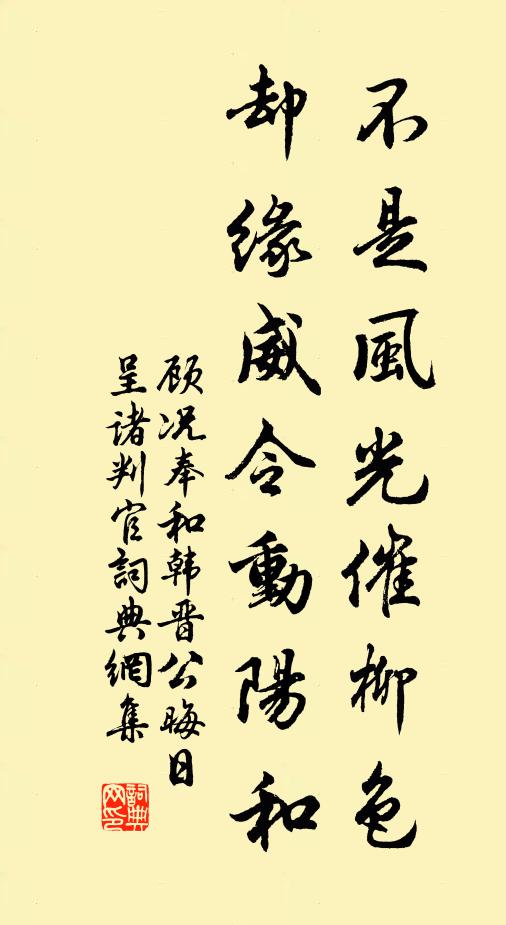 不是風光催柳色
却緣威令動陽和
顾况奉和韩晋公晦日
呈诸判官詞典網集
詞典网印